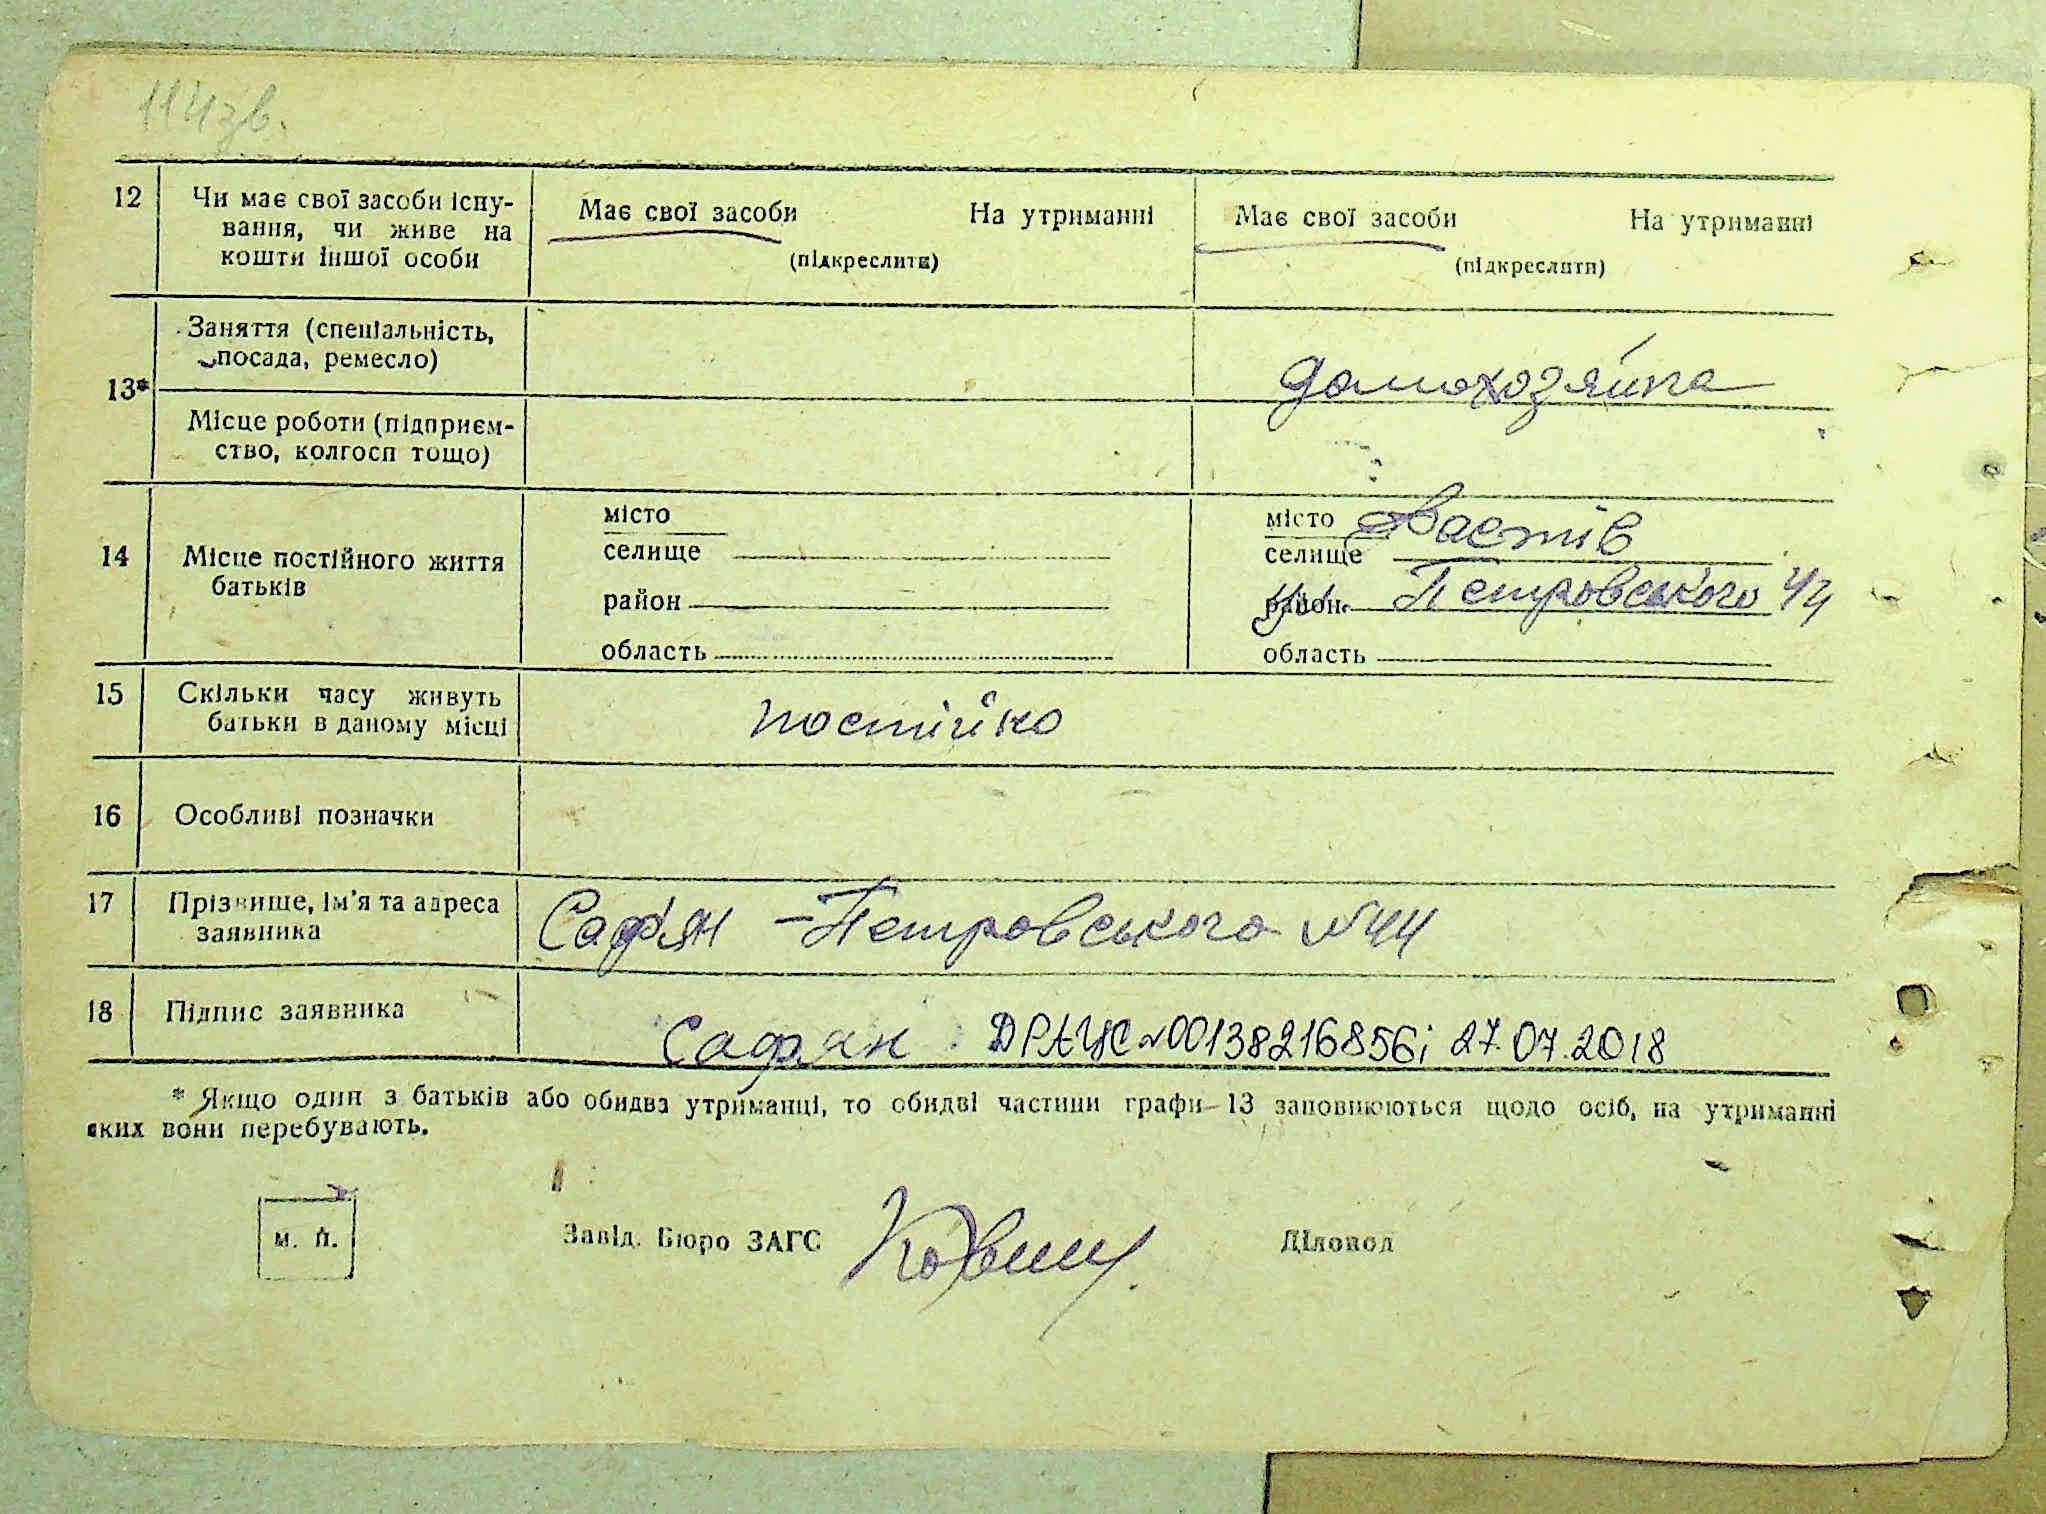 114зв.
12 Чи має свої засоби існу-
вання, чи живе на
кошти іншої особи
Має свої засоби На утриманні
(підкреслити)
Має свої засоби На утриманні
(підкреслити)
13* Заняття (спеціальність,
посада, ремесло)
домохозяйка
Місце роботи (підприєм-
ство, колгосп тощо)
14 Місце постійного життя
батьків
місто
селище
район
область
місто Фастів
селище
район Петровського 44
область
15 Скільки часу живуть
батьки в даному місці
постійно
16 Особливі позначки
17 Прізвище, ім'я та адреса
заявника
Саф'ян - Петровського №44
18 Підпис заявника
Сафян ДРАЦС №00138216856; 27.07.2018
* Якщо один з батьків або обидва утриманці, то обидві частини графи 13 заповнюються щодо осіб, на утриманні
яких вони перебувають.
м. п.
Завід. Бюро ЗАГС
Діловод